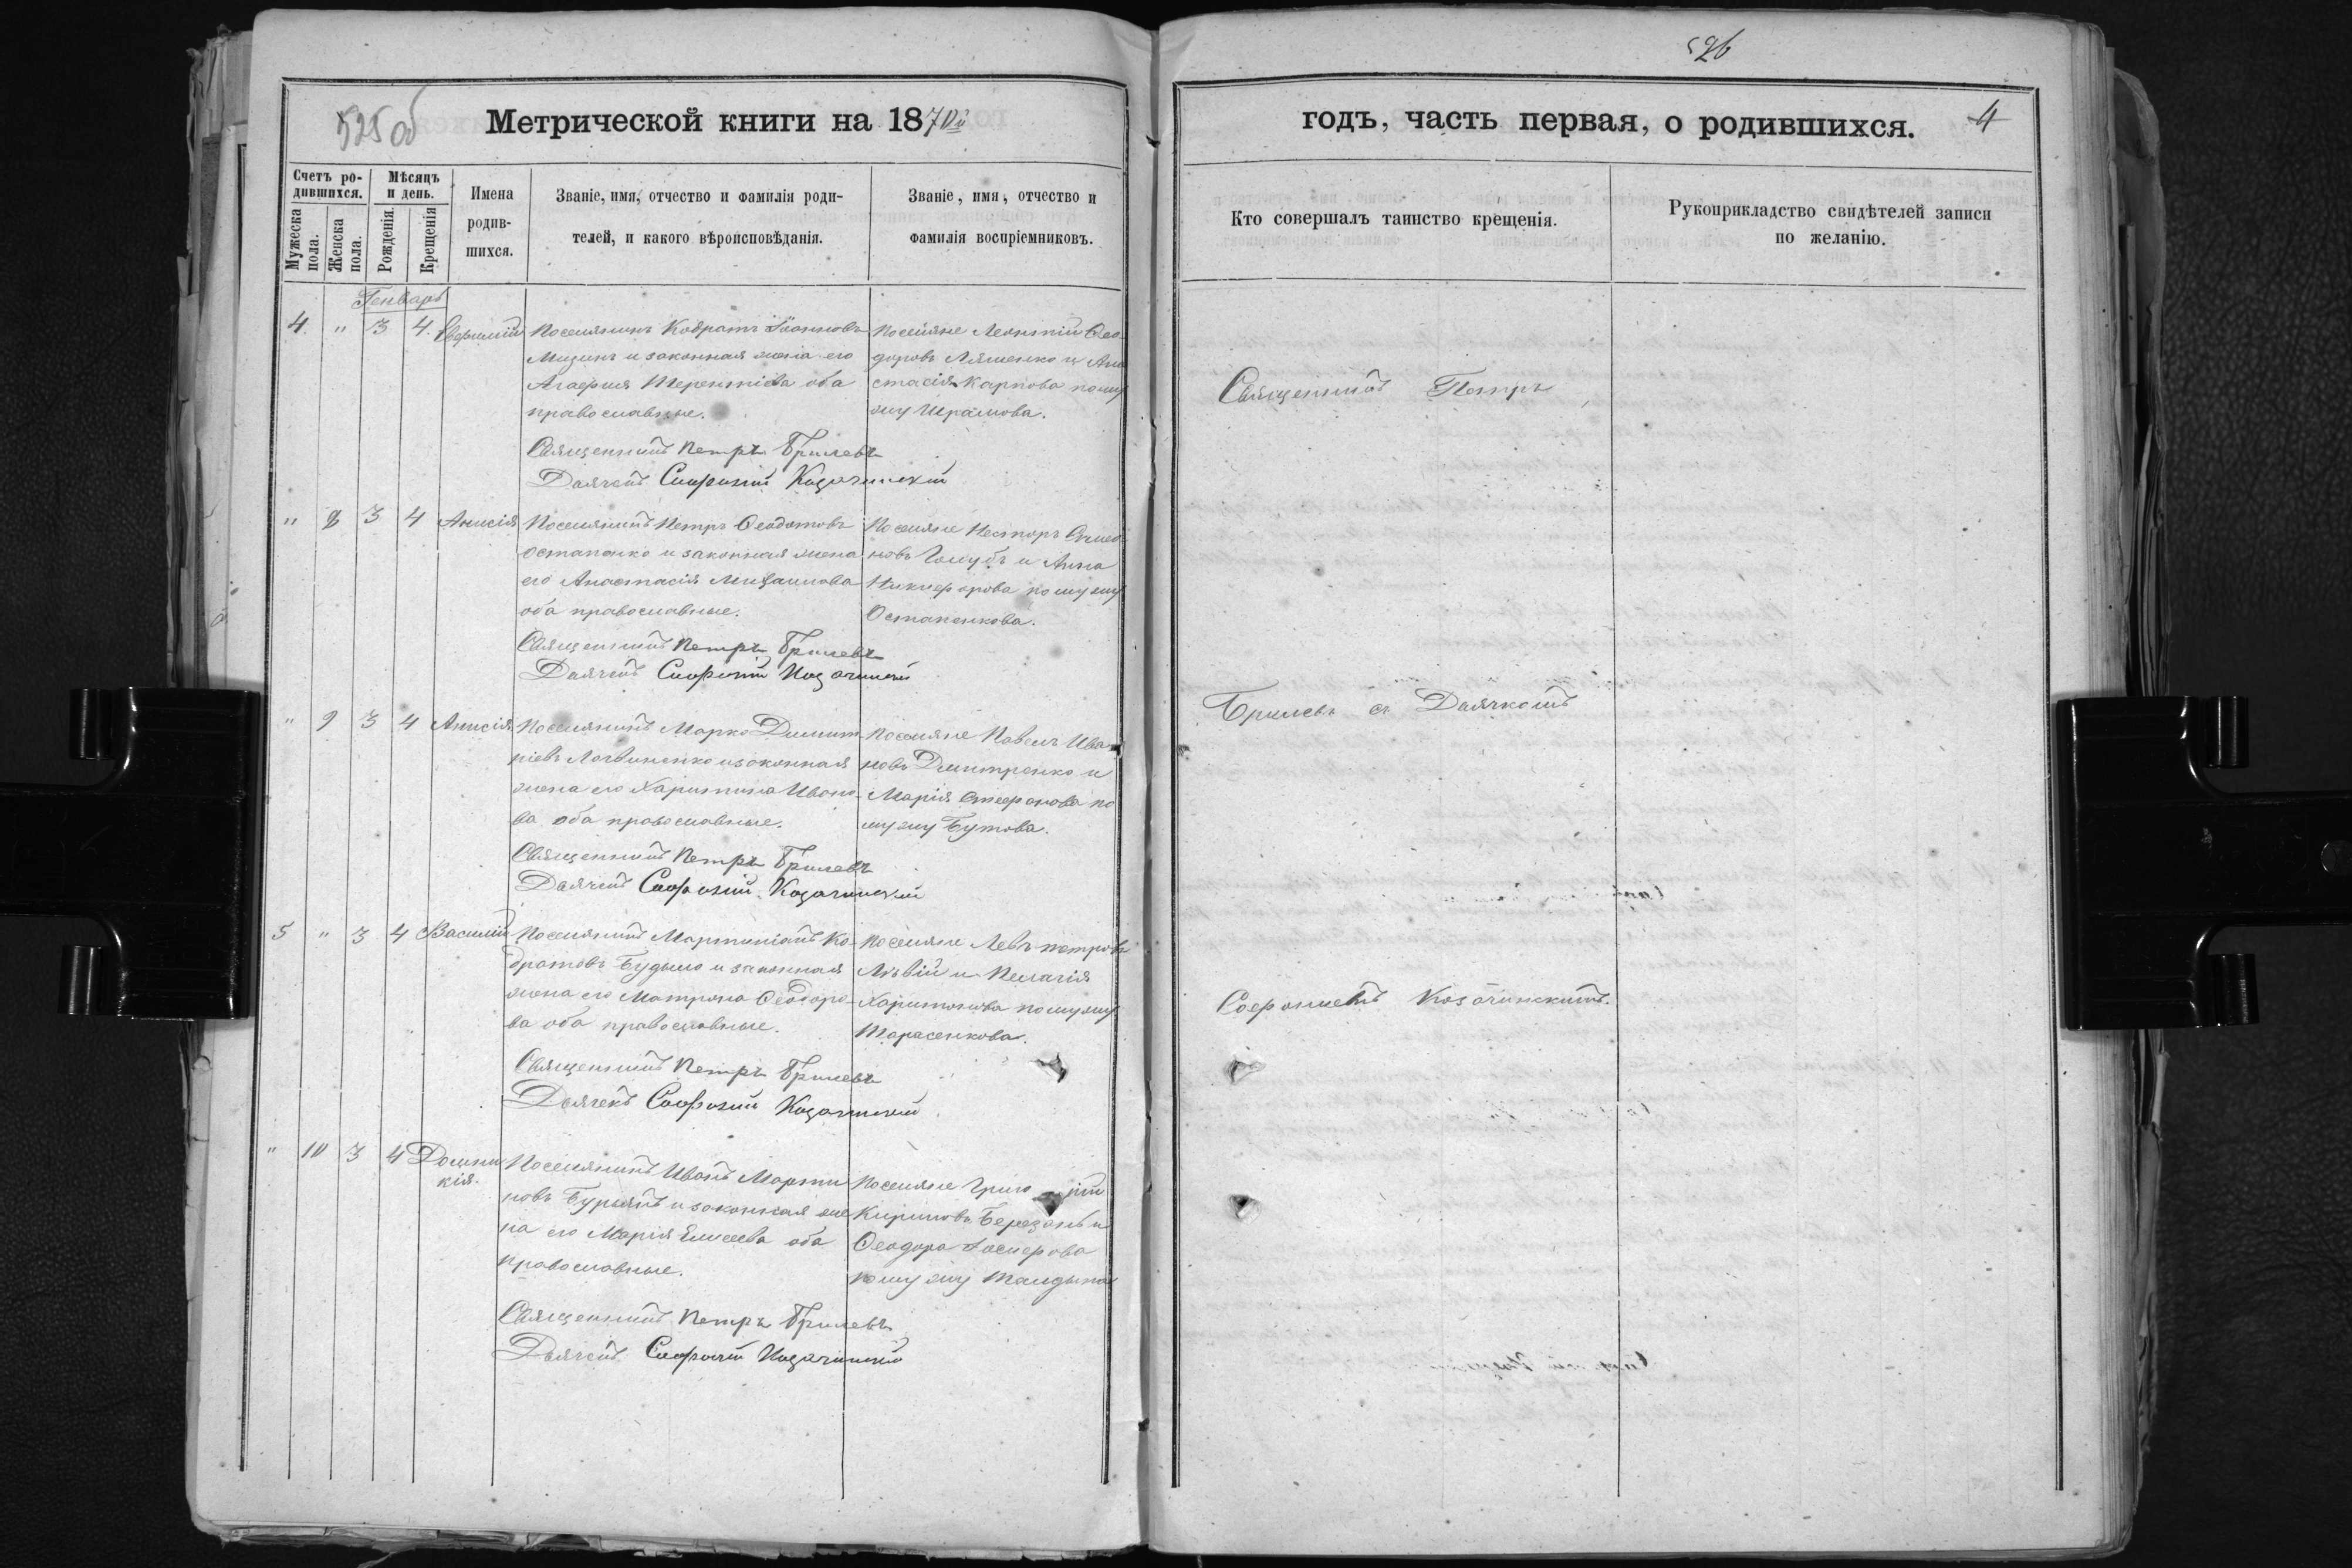 525 об
Метрической книги на 1870й
Счетъ ро-
дившихся.
Мѣсяцъ
и день.
Мужеска
пола.
Женска
пола.
Рожденія.
Крещенія
Имена
родив-
шихся.
Званіе, имя, отчество и фамилія роди-
телей, и какого вѣроисповѣданія.
Званіе, имя, отчество и
фамилія воспріемниковъ.
Генварь
4. " 3 4.
Поселянинъ Кодратъ Іоанновъ
и законная жена его
Агафія Терентіева оба
православные.
Поселяне Леонтій Ѳео-
доровъ Ляшенко и Ана
стасія Карпова по му
жу Шрамова.
Священникъ Петръ Брилевъ
Дьячекъ Софроній Козачинскій
" 8 3 4 Анисія
Поселянинъ Петръ Ѳеодотовъ
Остапенко и законная жена
его Анастасія Михаилова
оба православные.
Поселяне Несторъ
новъ Голубъ и Анна
Никифорова по мужу
Остапенкова.
Священникъ Петръ Брилевъ
Дьячекъ Софроній Козачинскій
" 9 3 4 Анисія
Поселянинъ Марко Димит
ріевъ Логвиненко и законная
жена его Харитина Ивано-
ва оба православные.
Поселяне Павелъ Ива
новъ Дмитренко и
Марія Стефанова по
мужу Бутова.
Священникъ Петръ Брилевъ
Дьячекъ Софроній Козачинскій
5 " 3 4 Василій
Поселянинъ Мартиніанъ Ко-
дратовъ Будыло и законная
жена его Матрона Ѳеодоро-
ва оба православные.
Поселяне Левъ Петровъ
и Пелагія
Харитонова по мужу
Тарасенкова.
Священникъ Петръ Брилевъ
Дьячекъ Софроній Козачинскій
" 10 3 4 Домни
кія.
Поселянинъ Иванъ Марти
новъ Бурьянъ и законная же
на его Марія Елисеева оба
православные.
Поселяне Григо рій
Кириловъ Березань и
Ѳеодора Іосифова
по мужу
Священникъ Петръ Брилевъ
Дьячекъ Софроній Козачинскій
526
годъ, часть первая, о родившихся.
4
Кто совершалъ таинство крещенія.
Рукоприкладство свидѣтелей записи
по желанію.
Священникъ Петръ
Брилевъ съ Дьячкомъ
Софроніемъ Козачинскимъ.